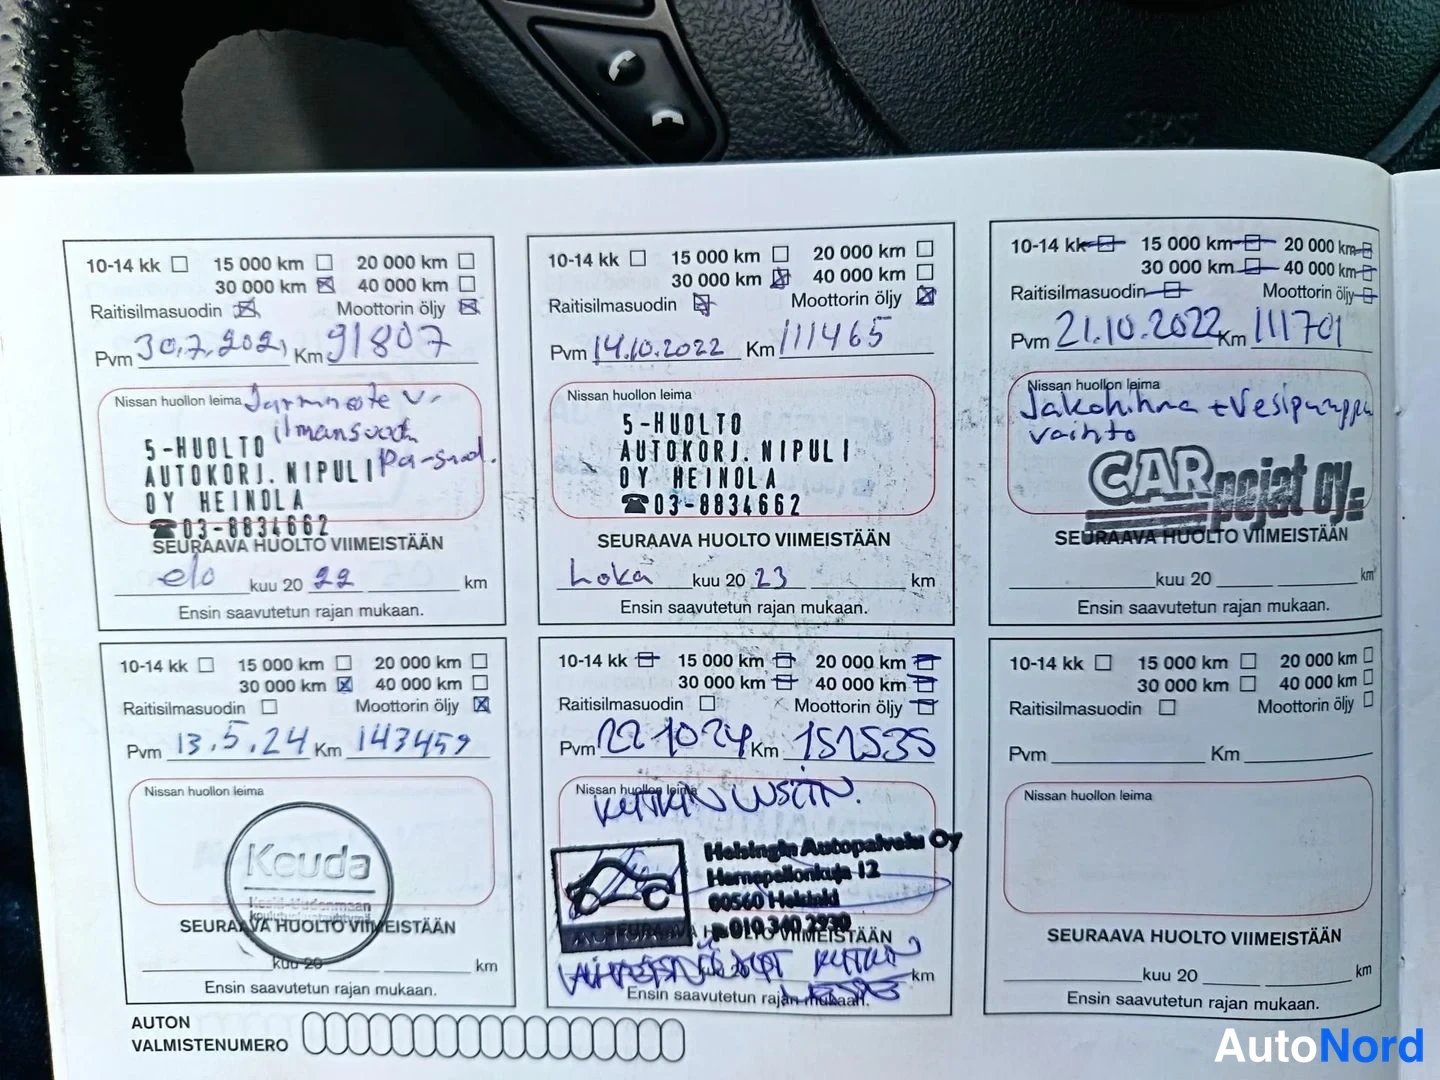 10-14 kk 15 000 km 20 000 km
30 000 km 40 000 km
Raitisilmasuodin Moottorin öljy
Pvm 30.7.2021 Km 91807
Nissan huollon leima Jarruneste v.
ilmansuod.
5-HUOLTO
AUTOKORJ. NIPULI
OY HEINOLA
☎03-8834662
SEURAAVA HUOLTO VIIMEISTÄÄN
elo kuu 20 22 km
Ensin saavutetun rajan mukaan.
10-14 kk 15 000 km 20 000 km
30 000 km 40 000 km
Raitisilmasuodin Moottorin öljy
Pvm 14.10.2022 Km 111465
Nissan huollon leima
5-HUOLTO
AUTOKORJ. NIPULI
OY HEINOLA
☎03-8834662
SEURAAVA HUOLTO VIIMEISTÄÄN
Loka kuu 20 23 km
Ensin saavutetun rajan mukaan.
10-14 kk 15 000 km 20 000 km
30 000 km 40 000 km
Raitisilmasuodin Moottorin öljy
Pvm 21.10.2022 Km 111701
Nissan huollon leima
Jakohihna + Vesipumppu
vaihto
CAR pojat oy
SEURAAVA HUOLTO VIIMEISTÄÄN
kuu 20 km
Ensin saavutetun rajan mukaan.
10-14 kk 15 000 km 20 000 km
30 000 km 40 000 km
Raitisilmasuodin Moottorin öljy
Pvm 13.5.24 Km 143459
Nissan huollon leima
Keuda
Keski-Uudenmaan
koulutuskuntayhtymä
SEURAAVA HUOLTO VIIMEISTÄÄN
kuu 20 km
Ensin saavutetun rajan mukaan.
10-14 kk 15 000 km 20 000 km
30 000 km 40 000 km
Raitisilmasuodin Moottorin öljy
Pvm 22 10 24 Km 151535
Nissan huollon leima
KYTKIN UUSITTIIN.
Helsingin Autopalvelu Oy
Hernepellonkuja 12
00560 Helsinki
p. 010 340 2930
SEURAAVA HUOLTO VIIMEISTÄÄN
KYTKIN
kuu 20 km
Ensin saavutetun rajan mukaan.
10-14 kk 15 000 km 20 000 km
30 000 km 40 000 km
Raitisilmasuodin Moottorin öljy
Pvm Km
Nissan huollon leima
SEURAAVA HUOLTO VIIMEISTÄÄN
kuu 20 km
Ensin saavutetun rajan mukaan.
AUTON
VALMISTENUMERO
AutoNord